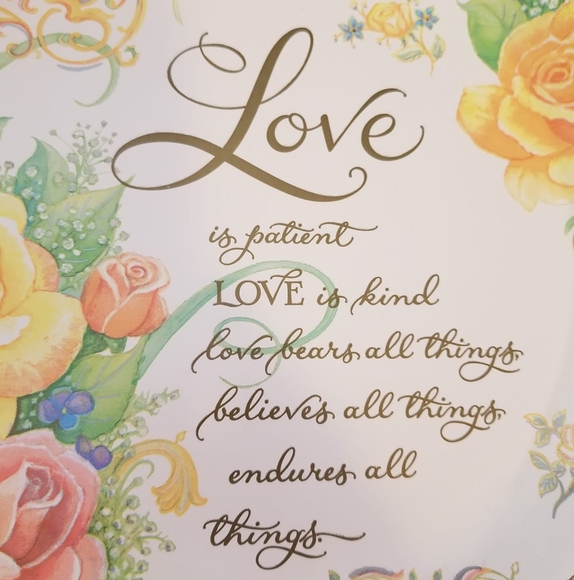 Love
is patient
LOVE is kind
love bears all things,
believes all things,
endures all
things.